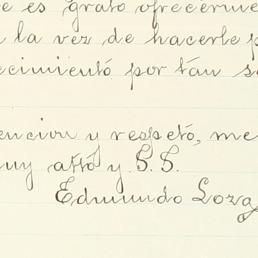 e es grato ofrecerme
a la vez de hacerle p
ecimientó por tan s
encion y respetó, me
uy attó y S. S.
Edmundo Loza